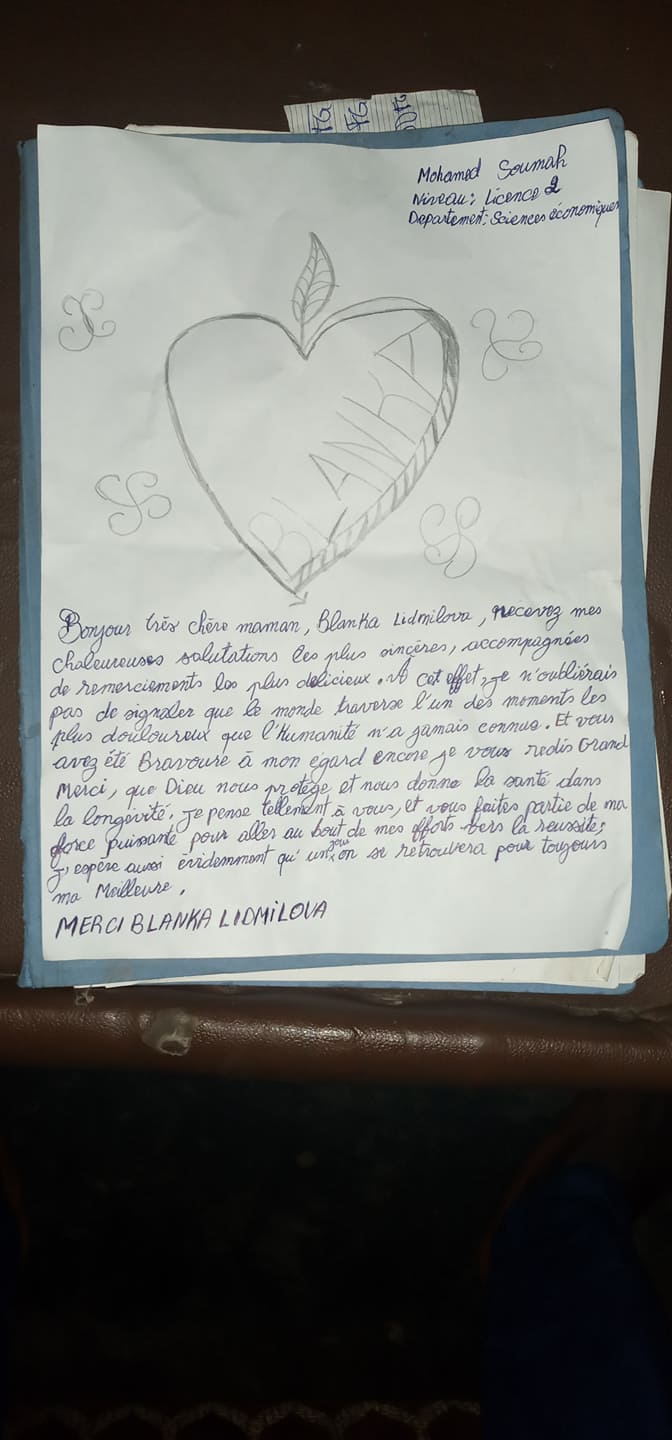 Mohamed Soumah
Niveau: Licence 2
Departement: Sciences économiques
BLANKA
Bonjour très chère maman, Blanka Lidmilova, recevez mes
chaleureuses salutations les plus sincères, accompagnées
de remerciements les plus delicieux. A cet effet, je n'oublierais
pas de signaler que le monde traverse l'un des moments les
plus douloureux que l'Humanité n'a jamais connue. Et vous
avez été Bravoure à mon égard encore je vous redis Grand
Merci, que Dieu nous protège et nous donne la santé dans
la longévité. Je pense tellement à vous, et vous faites partie de ma
force puissante pour aller au bout de mes efforts vers la reussite;
J'espère aussi évidemment qu'un jour on se retrouvera pour toujours
ma Meilleure.
MERCI BLANKA LIDMILOVA